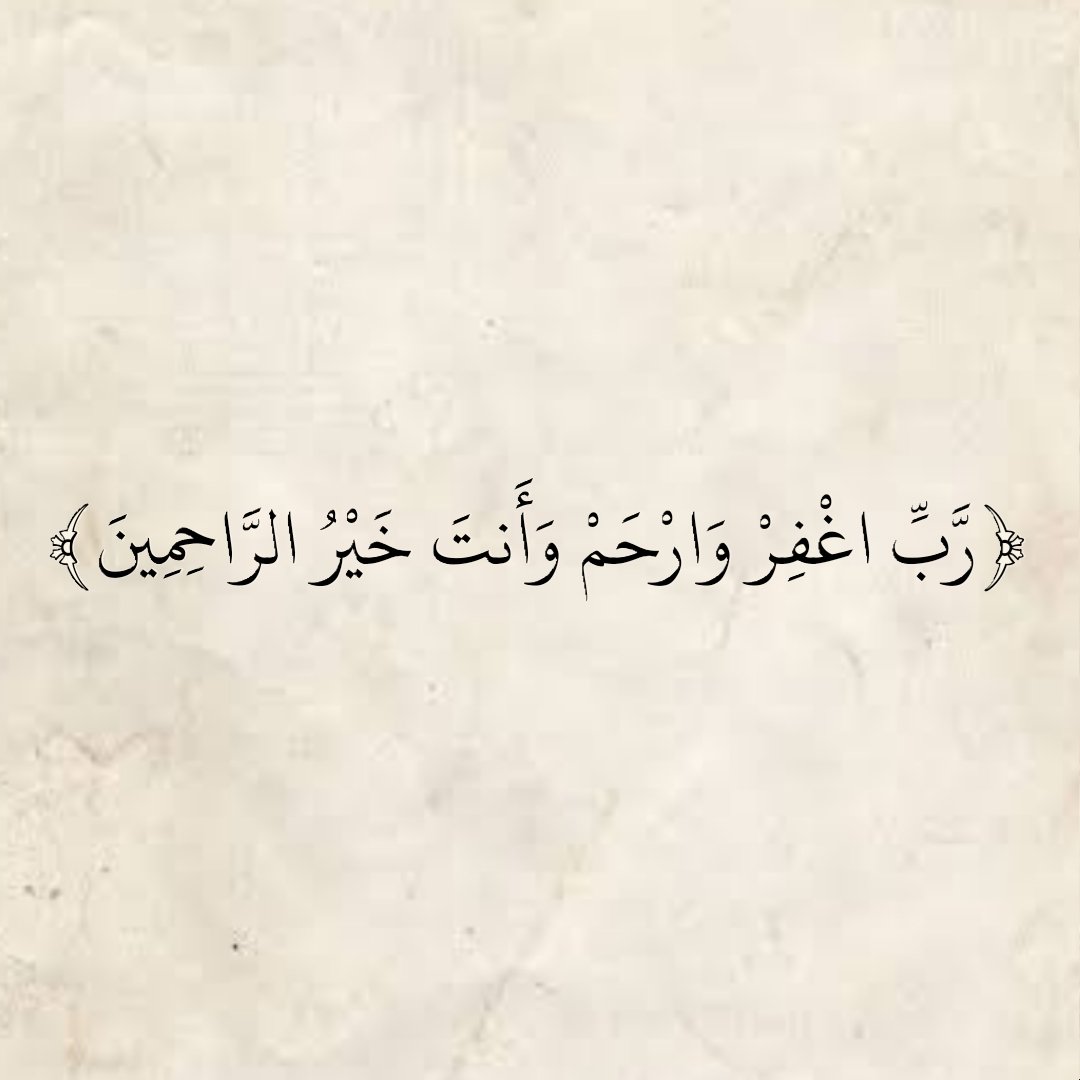 ﴿رَّبِّ اغْفِرْ وَارْحَمْ وَأَنتَ خَيْرُ الرَّاحِمِينَ﴾